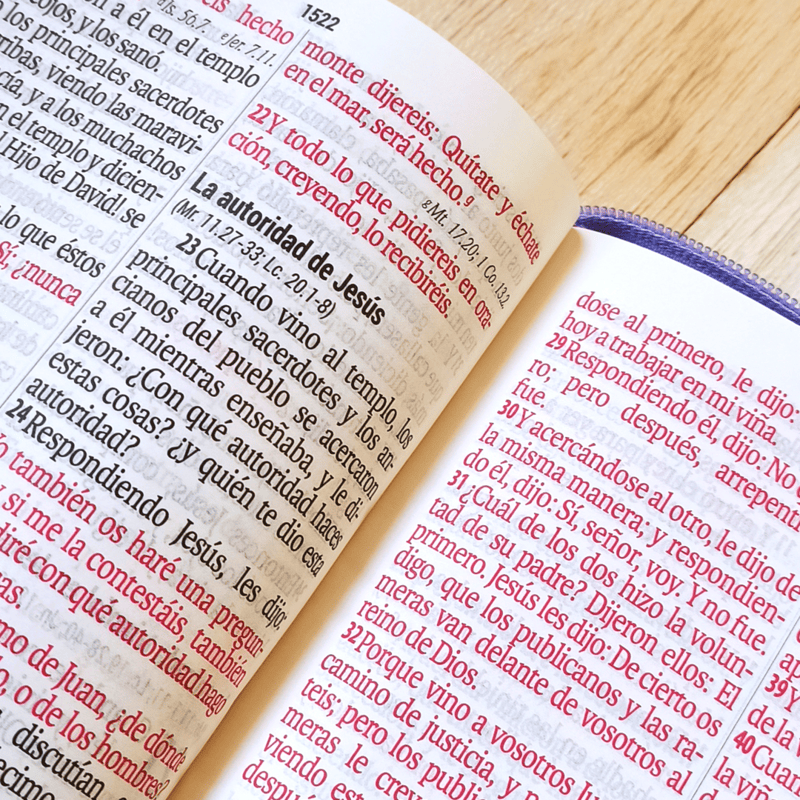 1522
hecho
efs. 56.7. e Jer. 7.11.
n a él en el templo
cojos, y los sanó.
los principales sacerdotes
ribas, viendo las maravi-
cía, y a los muchachos
n el templo y dicien-
l Hijo de David! se
lo que éstos
Sí; ¿nunca
monte dijereis: Quítate y échate
en el mar, será hecho.g
g Mt. 17.20; 1 Co. 13.2.
22 Y todo lo que pidiereis en ora-
ción, creyendo, lo recibiréis.
La autoridad de Jesús
(Mr. 11.27-33; Lc. 20.1-8)
23 Cuando vino al templo, los
principales sacerdotes y los an-
cianos del pueblo se acercaron
a él mientras enseñaba, y le di-
jeron: ¿Con qué autoridad haces
estas cosas? ¿Y quién te dio esta
autoridad?
24 Respondiendo Jesús, les dijo:
Yo también os haré una pregun-
si me la contestáis, también
diré con qué autoridad hago
mo de Juan, ¿de dónde
o, o de los hombres?
discutían
dose al primero, le dijo:
hoy a trabajar en mi viña.
29 Respondiendo él, dijo: No
ro; pero después, arrepenti
fue.
30 Y acercándose al otro, le dijo de
la misma manera; y respondien-
do él, dijo: Sí, señor, voy. Y no fue.
31 ¿Cuál de los dos hizo la volun-
tad de su padre? Dijeron ellos: El
primero. Jesús les dijo: De cierto os
digo, que los publicanos y las ra-
meras van delante de vosotros al
reino de Dios.
32 Porque vino a vosotros
camino de justicia, y n
teis; pero los publi
meras le crey
viendo est
después
39 Y
de la v
40 Cuan
la viñ